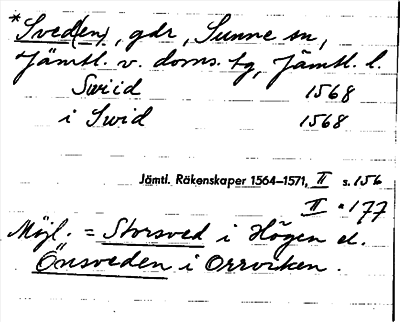 *Sved(en), gdr, Sunne sn,
Jämtl. v. doms. tg, Jämtl. l.
Swiid 1568
i Swid 1568
Jämtl. Räkenskaper 1564–1571, II s. 156
II " 177
Möjl. = Storsved i Högen el.
Önsveden i Orrviken.